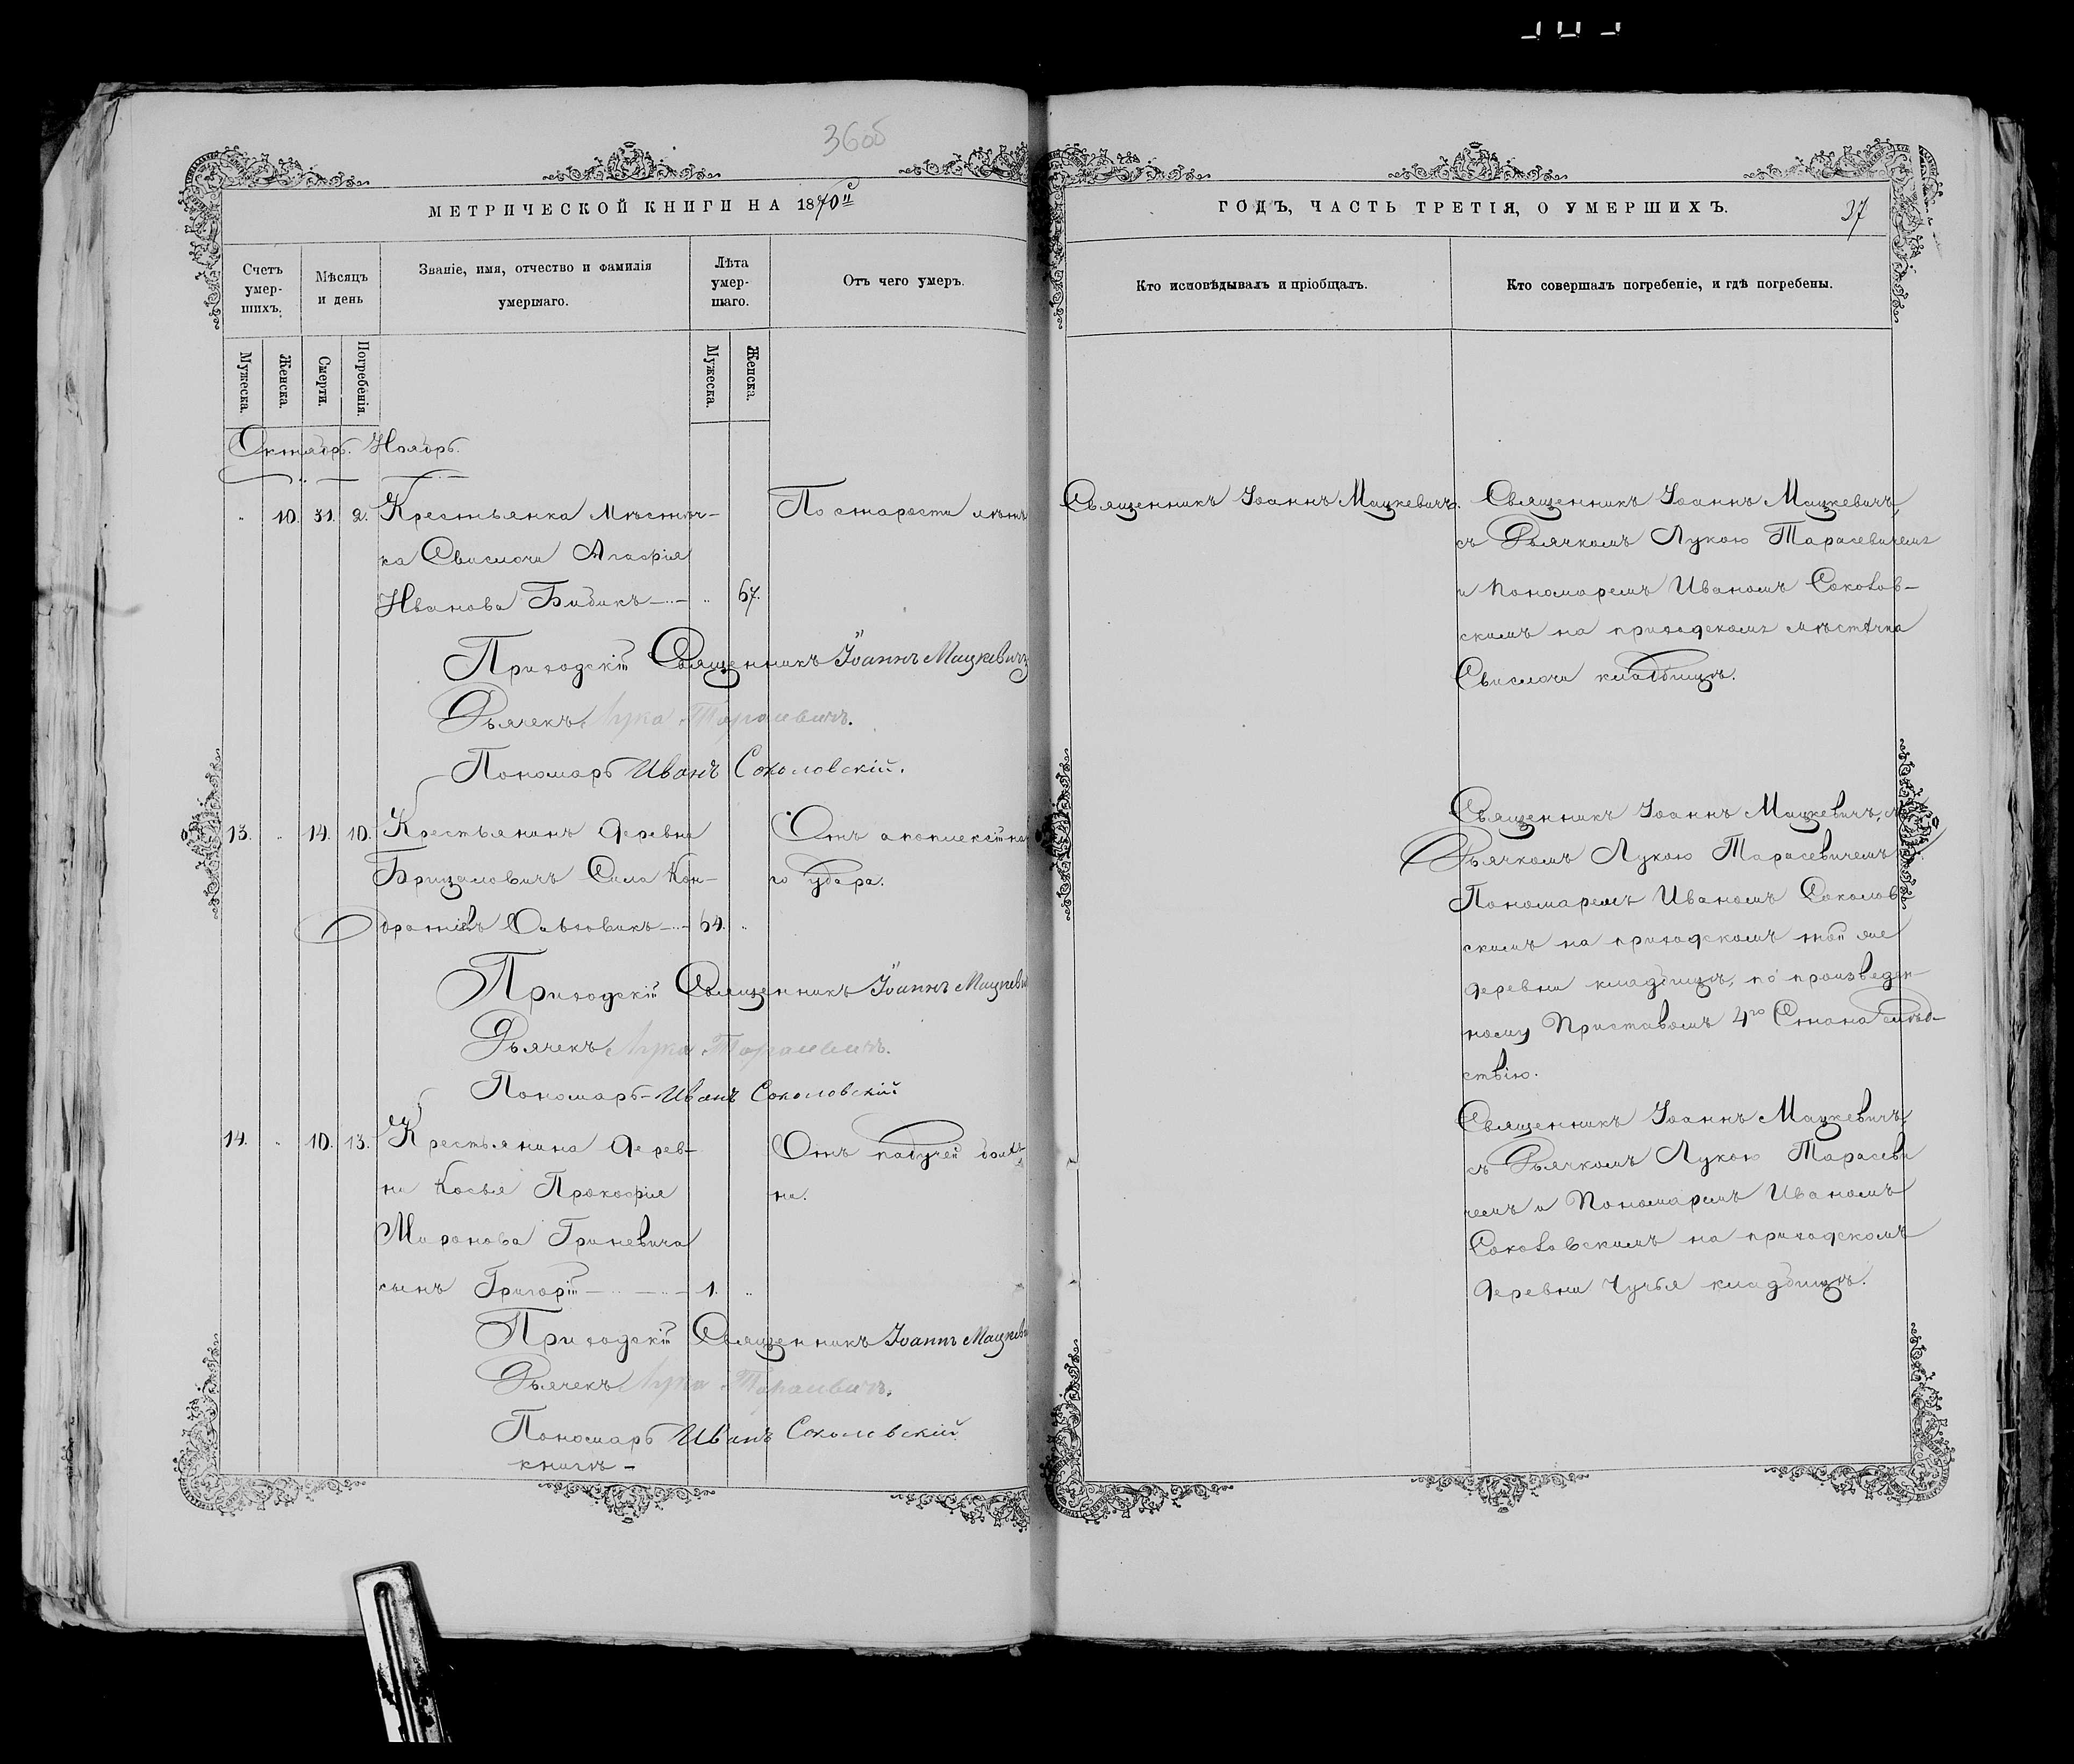 36об
МЕТРИЧЕСКОЙ КНИГИ НА 1870й
ГОДЪ, ЧАСТЬ ТРЕТІЯ, О УМЕРШИХЪ.
37
Счетъ умер-
шихъ.
Мѣсяцъ
и день
Званіе, имя, отчество и фамилія
умершаго.
Лѣта
умер-
шаго.
Отъ чего умеръ.
Кто исповѣдывалъ и пріобщалъ.
Кто совершалъ погребеніе, и гдѣ погребены.
Мужеска.
Женска.
Смерти.
Погребенія.
Мужеска.
Женска.
Октябрь. Ноябрь.
„ 10. 31. 2. Крестьянка мѣстеч-
ка Свислочи Агафія
Иванова Бибикъ „ 67.
По старости лѣтъ
Священникъ Іоаннъ Мацкевичъ.
Священникъ Іоаннъ Мацкевичъ,
съ Дьячкомъ Лукою Тарасевичемъ
и Пономаремъ Иваномъ Соколов-
скимъ на приходскомъ мѣстечка
Свислочи кладбищѣ.
Приходскій Священникъ Іоаннъ Мацкевичъ
Дьячекъ Лука Тарасевичъ.
Пономарь Иванъ Соколовскій.
13. „ 14. 10. Крестьянинъ деревни
Брицаловичъ Сила Кон-
дратіевъ 64. „
Отъ апоплексійна
го удара.
Священникъ Іоаннъ Мацкевичъ, съ
Дьячкомъ Лукою Тарасевичемъ
Пономаремъ Иваномъ Соколов
скимъ на приходскомъ той же
деревни кладбищѣ, по произведен-
ному Приставомъ 4го Стана слѣд-
ствію.
Приходскій Священникъ Іоаннъ Мацкеви
Дьячекъ Лука Тарасевичъ.
Пономарь Иванъ Соколовскій
14. „ 10. 13. Крестьянина дерев-
ни Косья Прокофія
Миронова Гриневича
сынъ Григорій 1. „
Отъ падучей болѣз
ни.
Священникъ Іоаннъ Мацкевичъ,
съ Дьячкомъ Лукою Тарасеви
чемъ и Пономаремъ Иваномъ
Соколовскимъ на приходскомъ
деревни Чучья кладбищѣ.
Приходскій Священникъ Іоаннъ Мацкеви
Дьячекъ Лука Тарасевичъ.
Пономарь Иванъ Соколовскій
книгѣ –